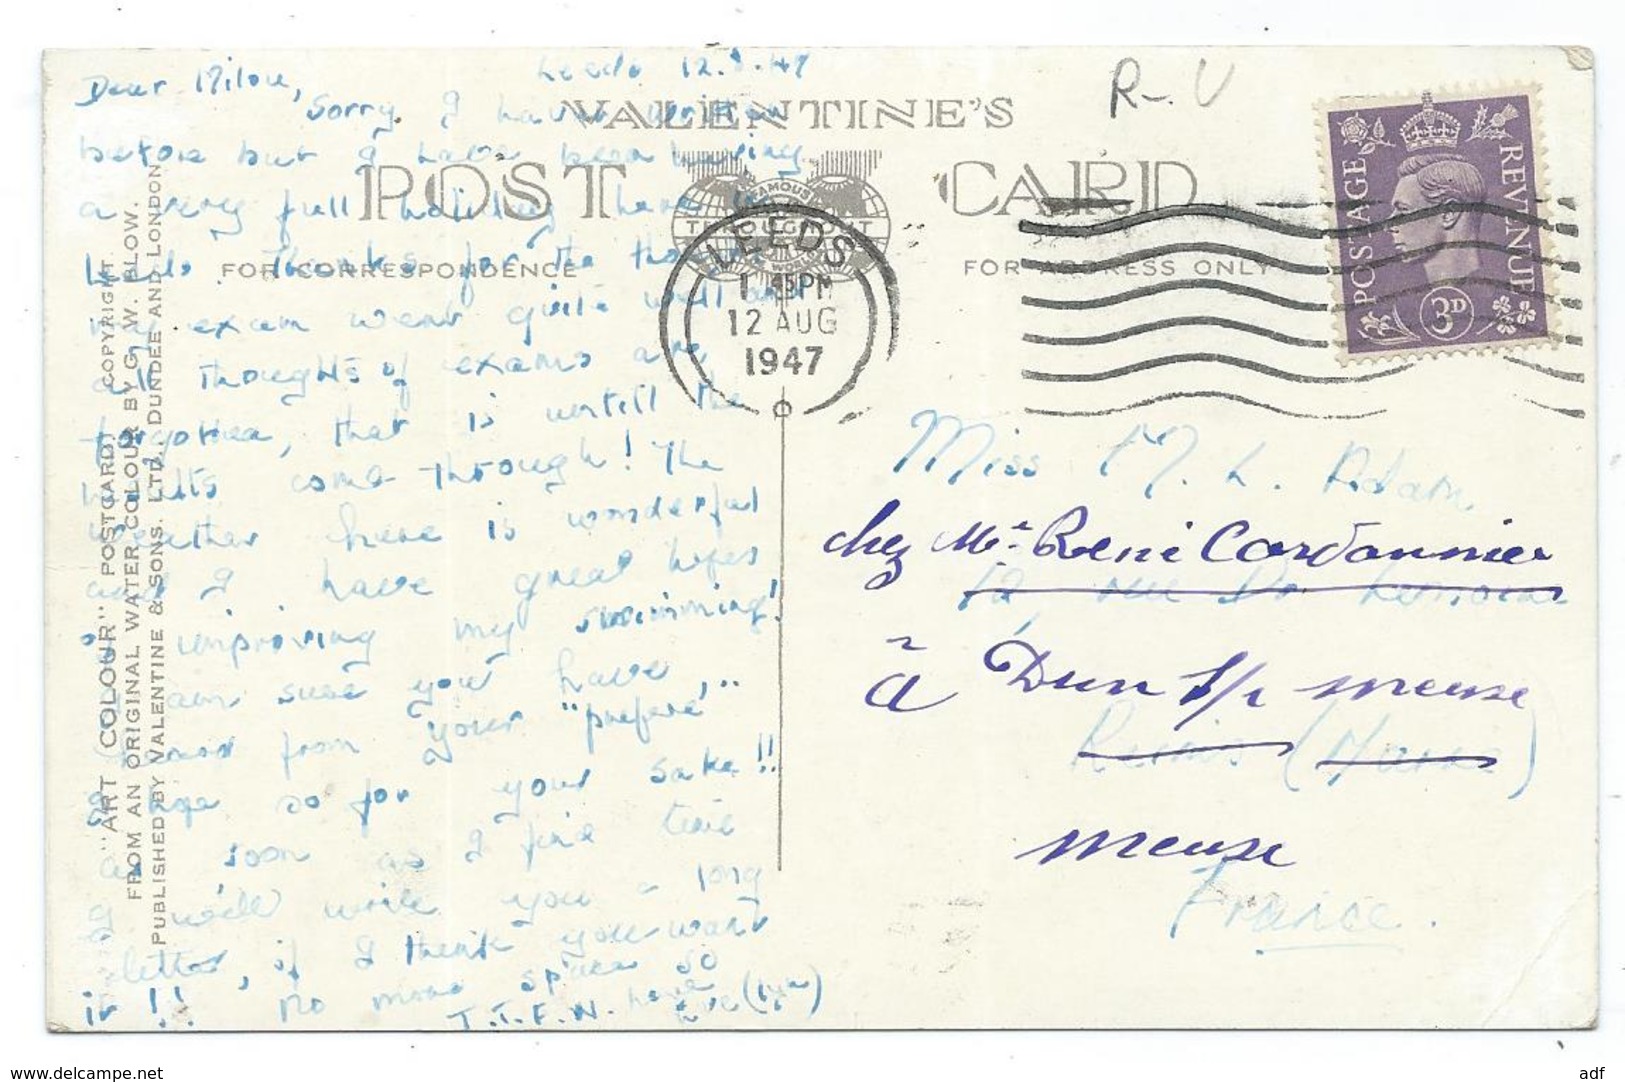 Dear Milou, Leeds 12.8.47
Sorry I haven't written
before but I have been having
a very full holiday here in
Leeds. Thanks for the
my exam went quite well and
all thoughts of exams are
forgotten, that is untill the
results come through! The
weather here is wonderful
and I have great hopes
of improving my swimming!
I am sure you have,
from your "préféré"
I hope so for your sake!!
as soon as I find time
I will write you a long
letter, if I think you want
it!! No more space so
T.T.F.N. love
Eve
VALENTINE'S
POST CARD
FAMOUS
THROUGHOUT
THE
WORLD
FOR CORRESPONDENCE
FOR ADDRESS ONLY
"ART COLOUR" POSTCARD. COPYRIGHT.
FROM AN ORIGINAL WATER-COLOUR BY G. W. BLOW.
PUBLISHED BY VALENTINE & SONS. LTD. DUNDEE AND LONDON
LEEDS
1 45 PM
12 AUG
1947
R-. U
POSTAGE
REVENUE
3D
Miss M. L. Adam,
chez Mr René Cordonnier
12, rue Dr
à Dun s/r meuse
Reims (Marne)
meuse
France.
delcampe.net
adf